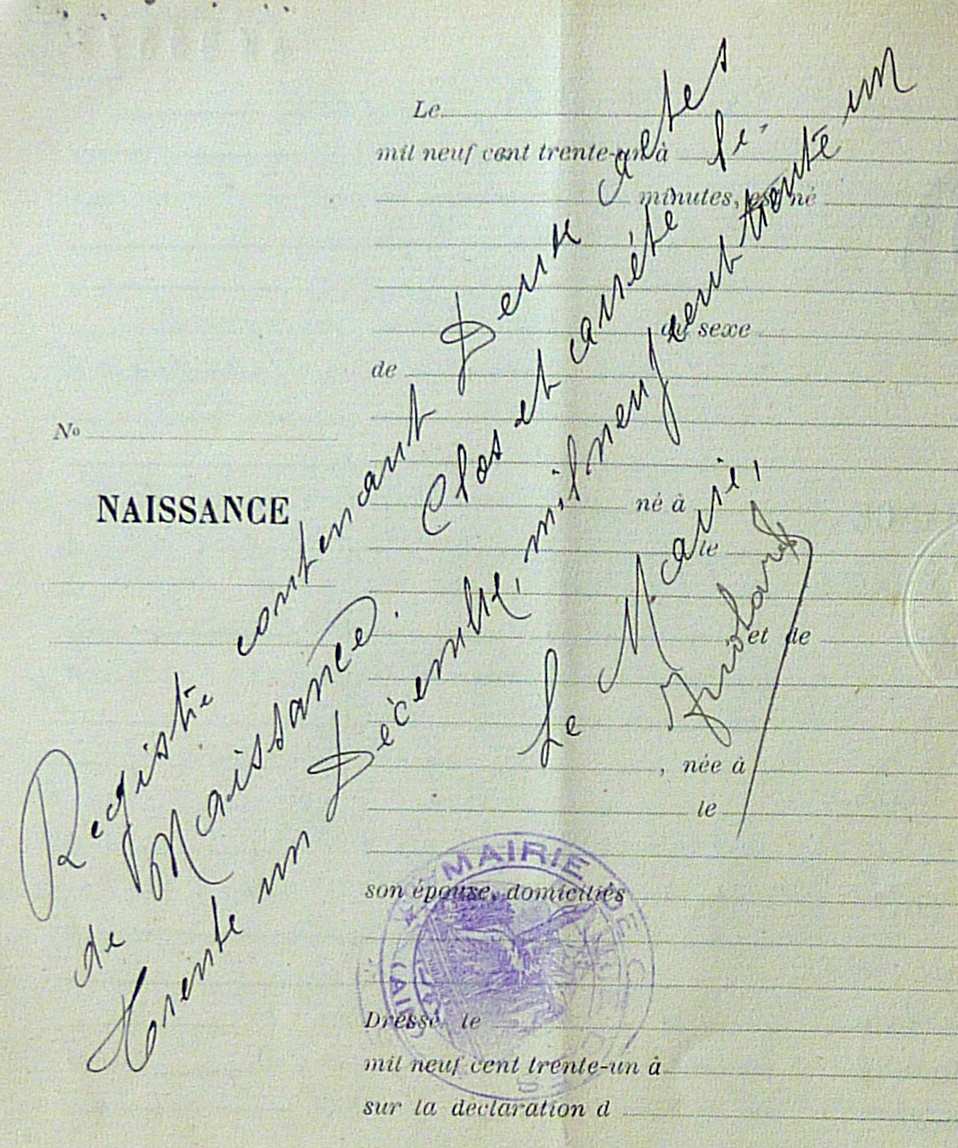 Le
mil neuf cent trente-un à
minutes, est né
du sexe
de
No
NAISSANCE
né à
le
et de
, née à
le
son épouse, domiciliés
Dressé le
mil neuf cent trente-un à
sur la déclaration d
Registre contenant Deux actes
de Naissance. Clos et arrêté le
trente un Décembre, mil neuf cent trente un
Le Maire,
MAIRIE DE
(AIN)